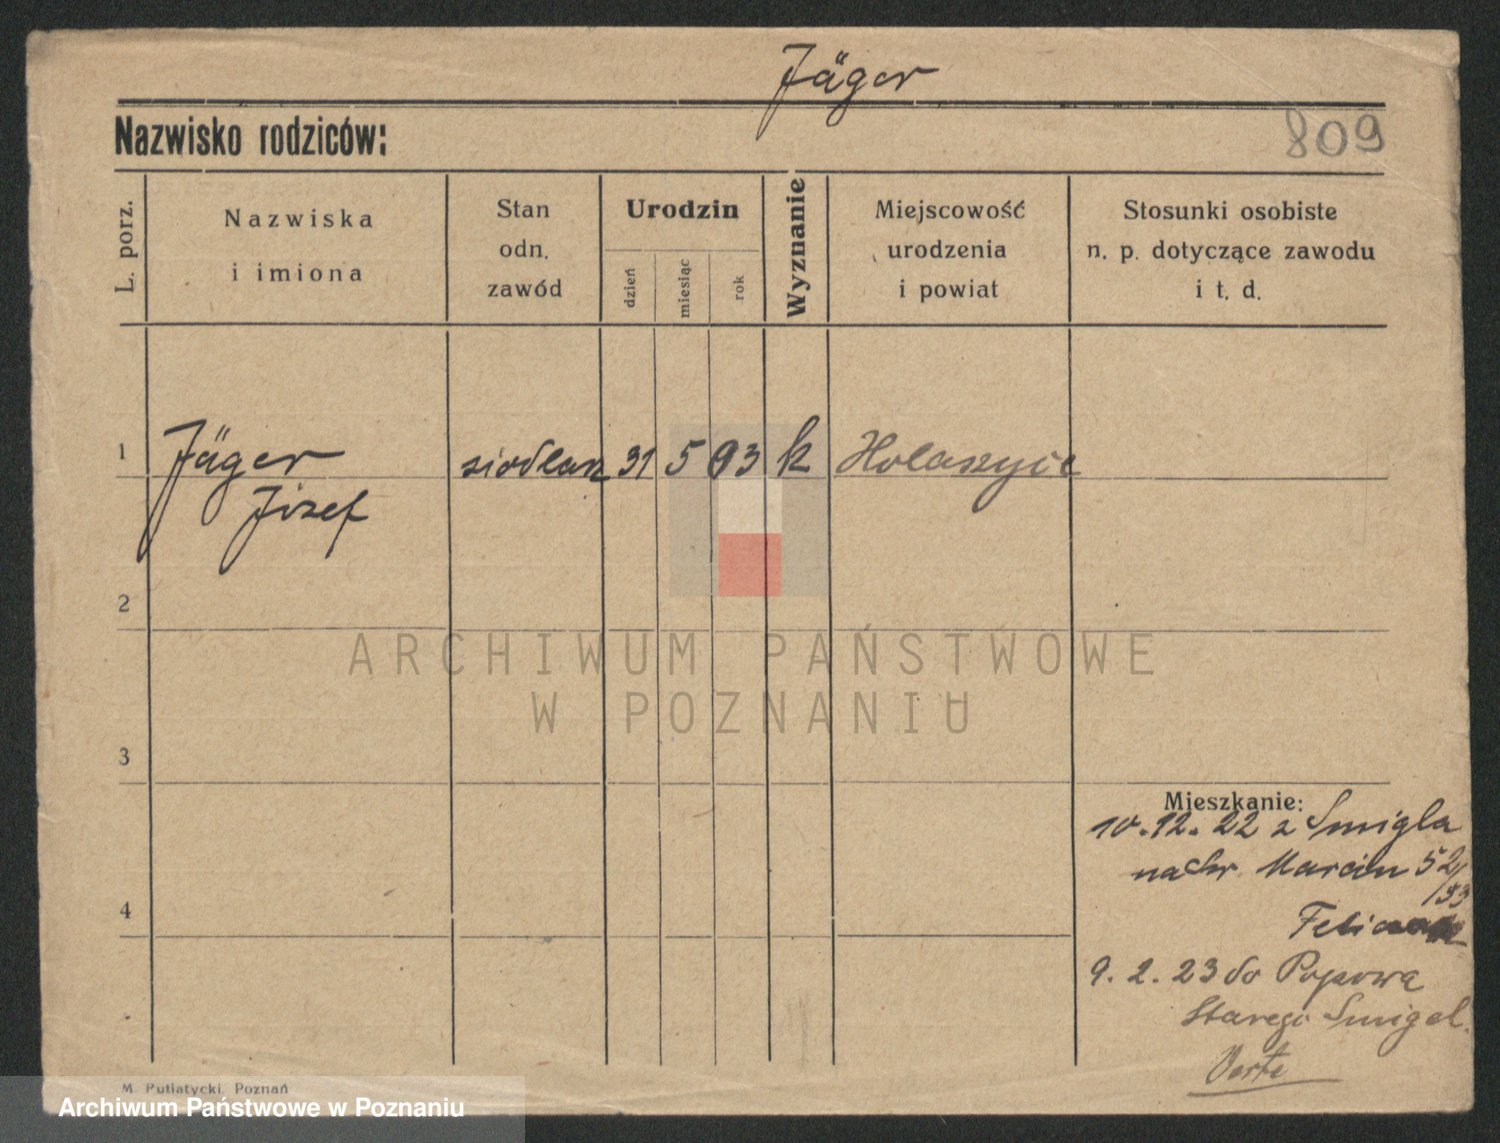 Jäger
Nazwisko rodziców:
809
L. porz.
Nazwiska
i imiona
Stan
odn.
zawód
Urodzin
dzień
miesiąc
rok
Wyznanie
Miejscowość
urodzenia
i powiat
Stosunki osobiste
n. p. dotyczące zawodu
i t. d.
1
Jäger
Józef
siodlarz
31
5
03
k
Holaszyce
2
3
4
ARCHIWUM PAŃSTWOWE
W POZNANIU
Mieszkanie:
10.12.22 z Smigla
na Św. Marcin 52/53
9.2.23 do Popowa
Starego Smigel.
Verte
M. Putiatycki, Poznań
Archiwum Państwowe w Poznaniu